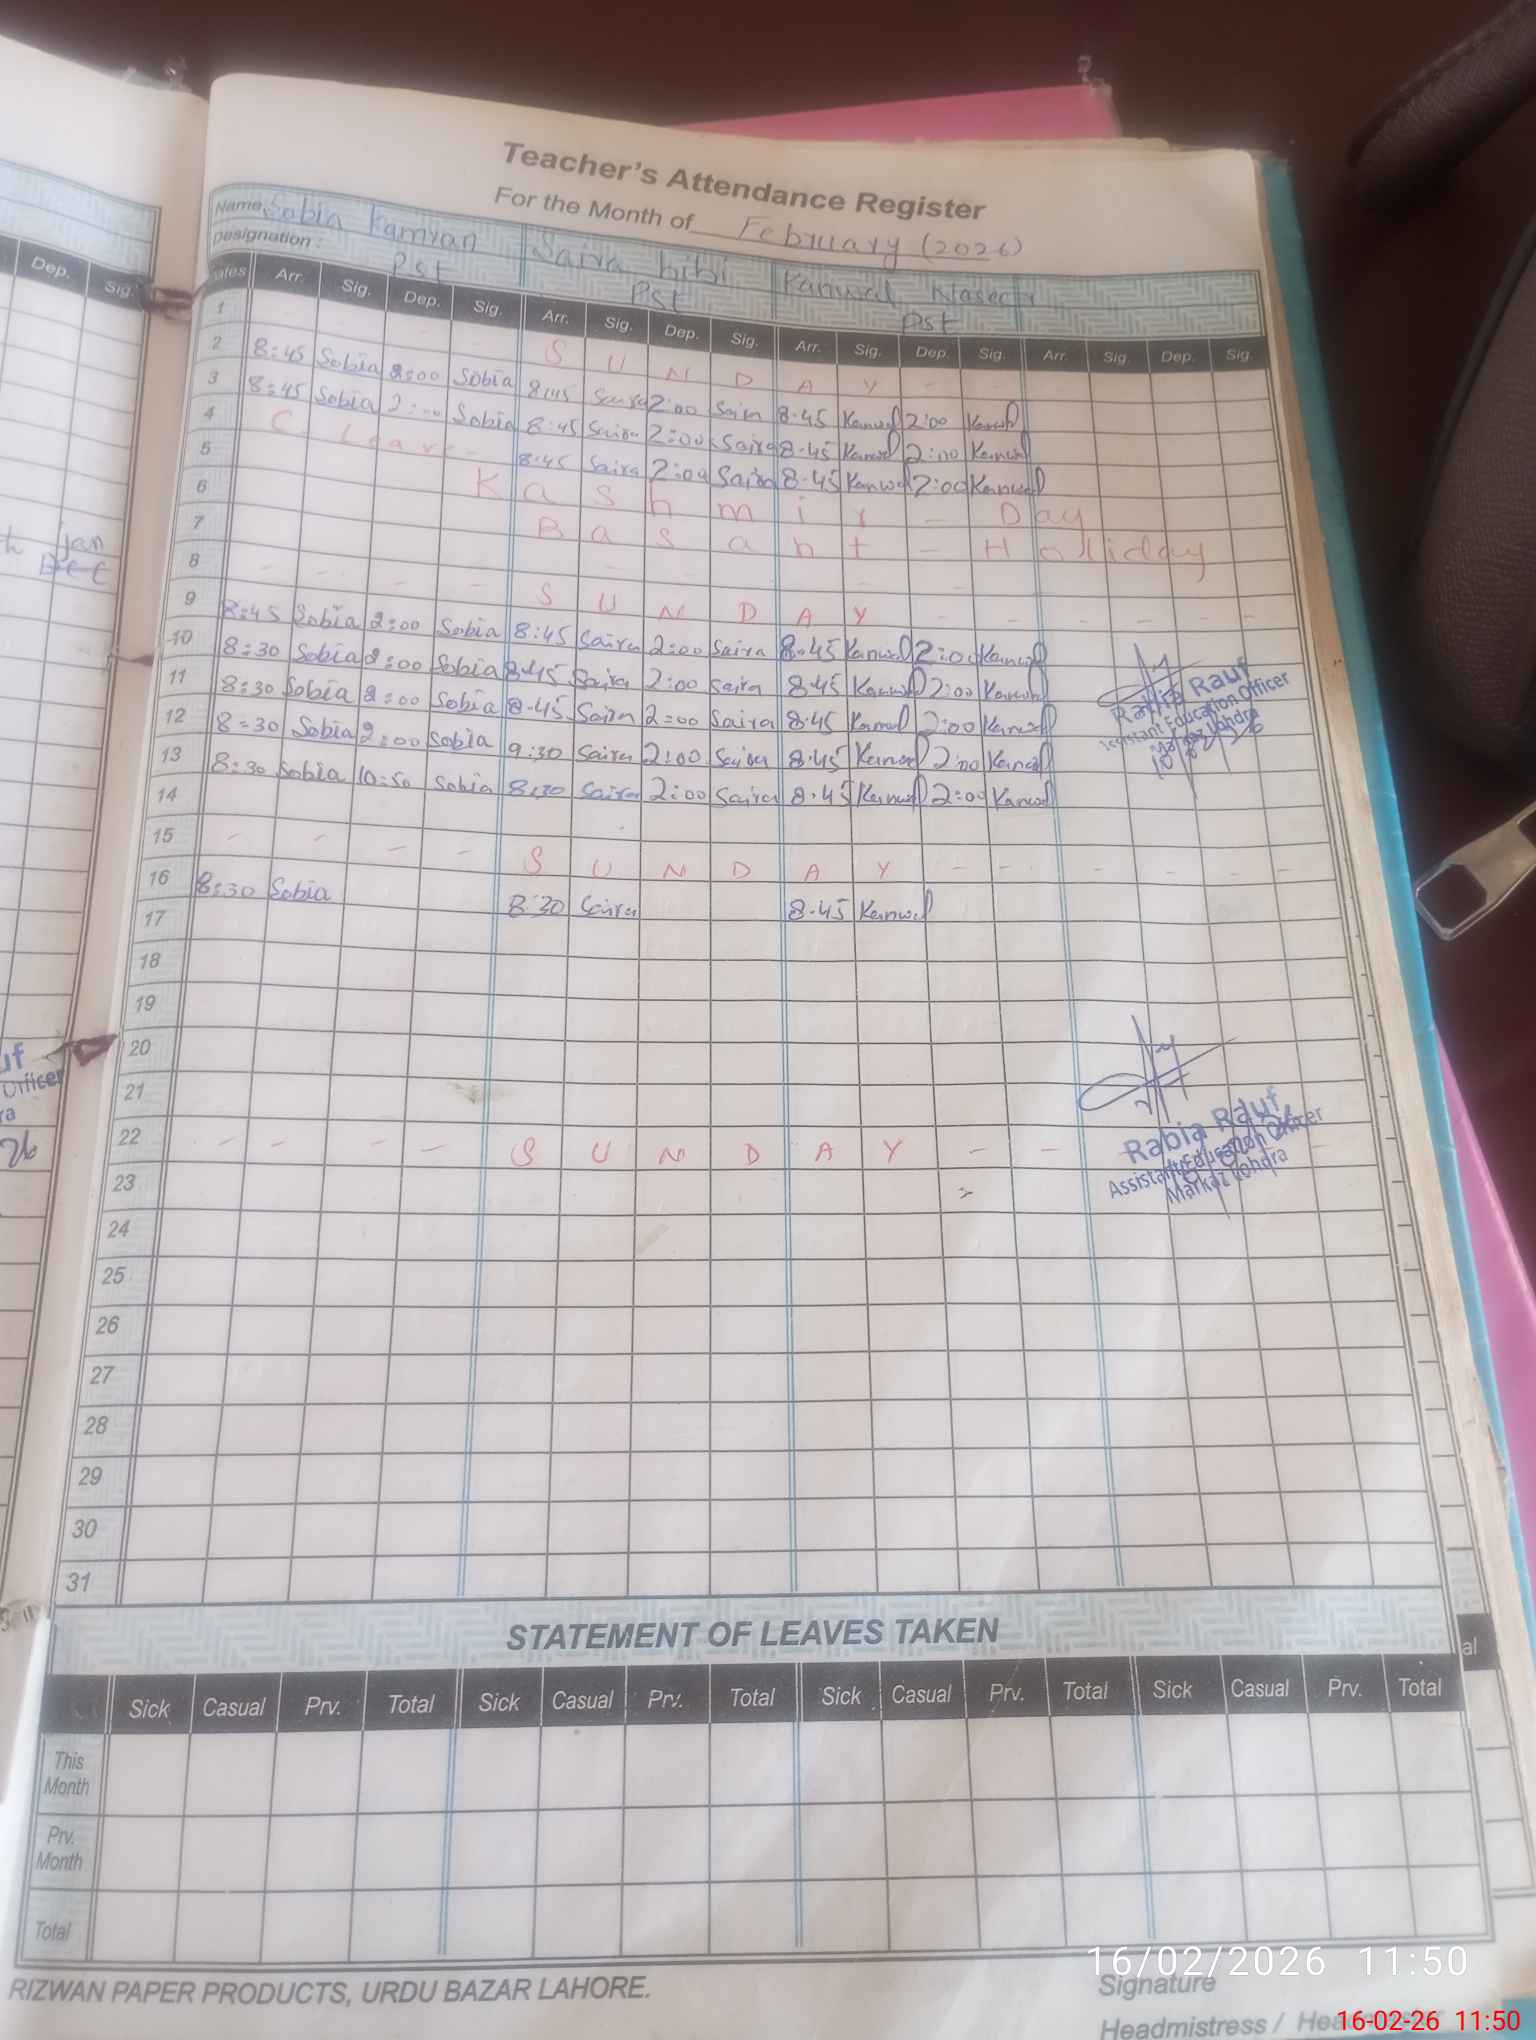 Teacher's Attendance Register
For the Month of February (2026)
Name Sobia Kamran Saira bibi Kanwal Naseer
Designation : Pst Pst Pst
Dates Arr. Sig. Dep. Sig. Arr. Sig. Dep. Sig. Arr. Sig. Dep. Sig. Arr. Sig. Dep. Sig
1 - - - - S U N D A Y - - - - - -
2 8:45 Sobia 2:00 Sobia 8:45 Saira 2:00 Saira 8.45 Kanwal 2:00 Kanwal
3 8:45 Sobia 2:00 Sobia 8:45 Saira 2:00 Saira 8.45 Kanwal 2:00 Kanwal
4 C. Leave - 8.45 Saira 2:00 Saira 8.45 Kanwal 2:00 Kanwal
5 K a s h m i r - Day
6 B a s a n t - Holliday
7
8 - - - - S U N D A Y - - - - - -
9 8:45 Sobia 2:00 Sobia 8:45 Saira 2:00 Saira 8.45 Kanwal 2:00 Kanwal
10 8:30 Sobia 2:00 Sobia 8.45 Saira 2:00 Saira 8.45 Kanwal 2:00 Kanwal
11 8:30 Sobia 2:00 Sobia 8.45 Saira 2:00 Saira 8.45 Kanwal 2:00 Kanwal
12 8:30 Sobia 2:00 Sobia 9:30 Saira 2:00 Saira 8.45 Kanwal 2:00 Kanwal
13 8:30 Sobia 10:50 Sobia 8:30 Saira 2:00 Saira 8.45 Kanwal 2:00 Kanwal
Rabia Rauf
Assistant Education Officer
Markaz Lohdra
10/02/26
14
15 - - - - S U N D A Y - - - - - -
16 8:30 Sobia 8:30 Saira 8.45 Kanwal
17
18
19
20
21
22 - - - - S U N D A Y - -
Rabia Rauf
Assistant Education Officer
Markaz Lohdra
23
24
25
26
27
28
29
30
31
STATEMENT OF LEAVES TAKEN
Sick Casual Prv. Total Sick Casual Prv. Total Sick Casual Prv. Total Sick Casual Prv. Total
This Month
Prv. Month
Total
RIZWAN PAPER PRODUCTS, URDU BAZAR LAHORE.
Signature
Headmistress /
16/02/2026 11:50
16-02-26 11:50
Dep. Sig.
jan
Dec
uf
Officer
ra
26
al